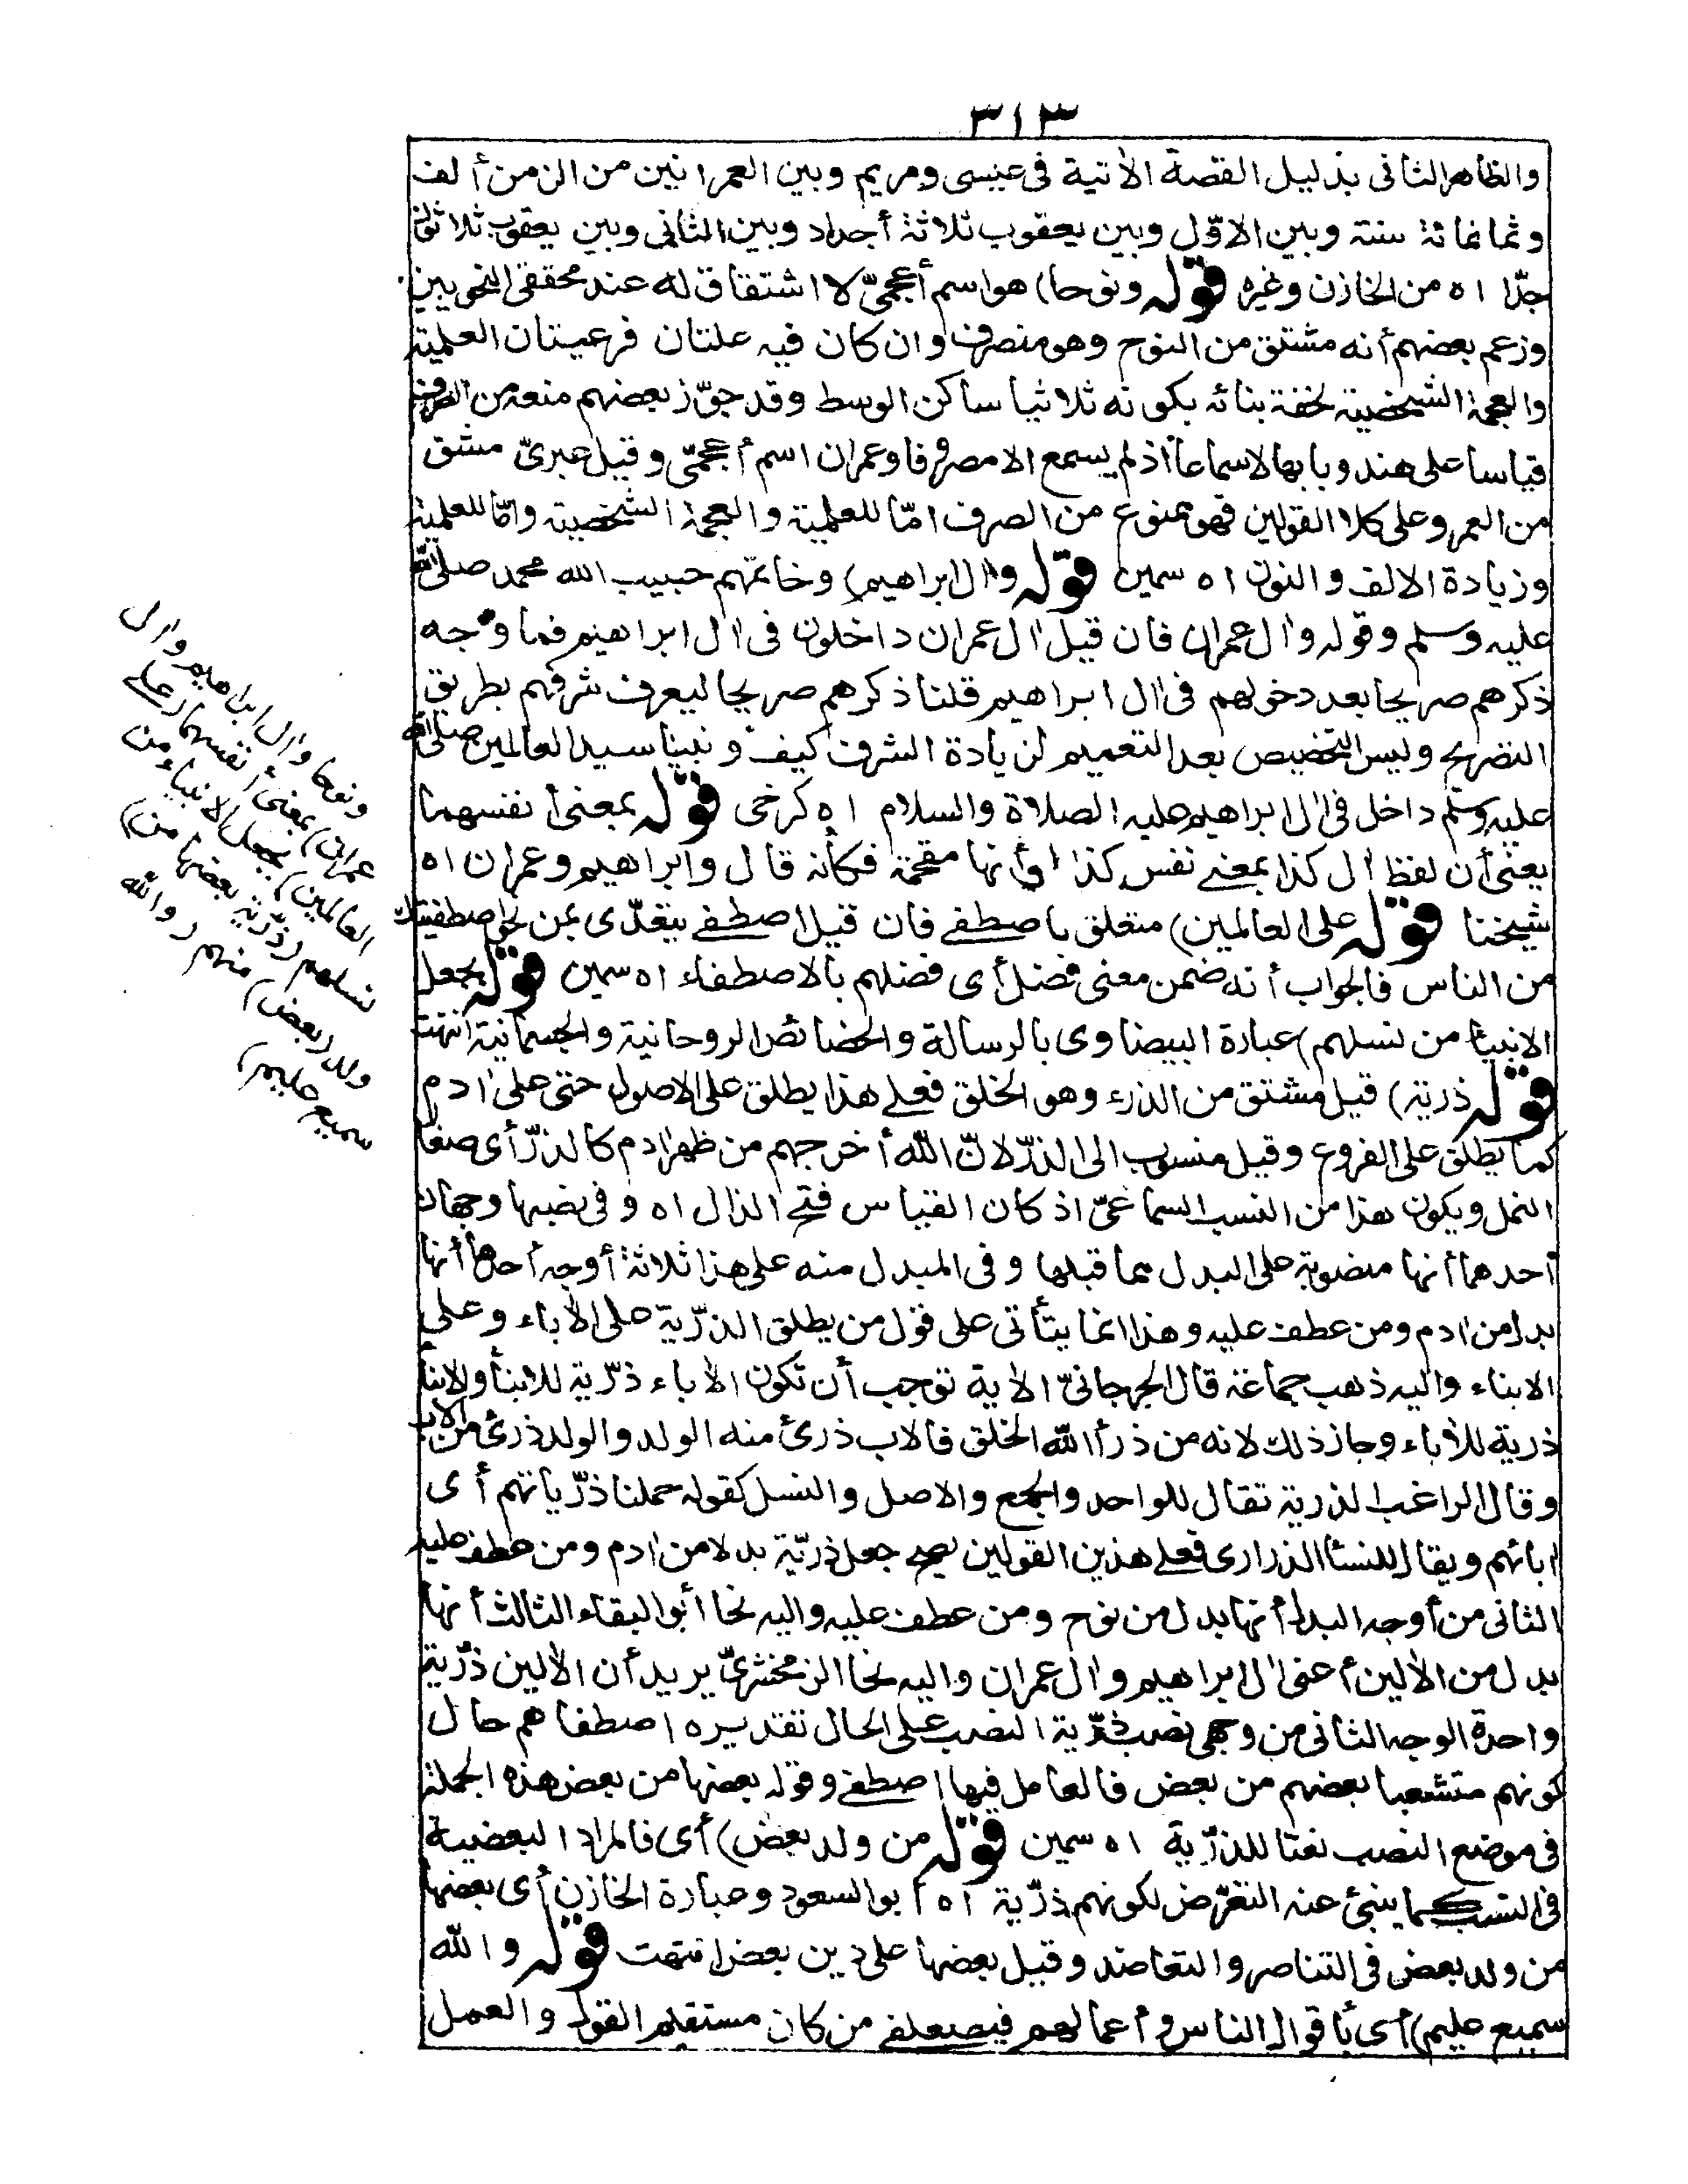 ٣١٣
والظاهر الثانى بدليل القصة الاٰتية فى عيسى ومريم وبين العمرانين من الزمن ألف
وثمانمائة سنة وبين الاوّل وبين يعقوب ثلاثة أجداد وبين الثانى وبين يعقوب ثلاثون
جدّا اه من الخازن وغيره قوله ونوحا) هو اسم أعجمىّ لا اشتقاق له عند محققى النحويين
وزعم بعضهم أنه مشتق من النوح وهو منصرف وان كان فيه علتان فرعيتان العلمية
والعجمة الشخصية لخفة بنائه بكونه ثلاثيا ساكن الوسط وقد جوّز بعضهم منعه من الصرف
قياسا على هند وبابها لا سماعا اذ لم يسمع الا مصروفا وعمران اسم أعجمىّ وقيل عبرىّ مشتق
من العمر وعلى كلا القولين فهو ممنوع من الصرف امّا للعلمية والعجمة الشخصية وامّا للعلمية
وزيادة الالف والنون اه سمين قوله واٰل ابراهيم) وخاتمتهم حبيب الله محمد صلى الله
عليه وسلم وقوله واٰل عمران فان قيل اٰل عمران داخلون فى اٰل ابراهيم فما وجه
ذكرهم صريحا بعد دخولهم فى اٰل ابراهيم قلنا ذكرهم صريحا ليعرف شرفهم بطريق
التصريح وليس التخصيص بعد التعميم لزيادة الشرف كيف ونبينا سيد العالمين صلى الله
عليه وسلم داخل فى اٰل ابراهيم عليه الصلاة والسلام اه كرخى قوله بمعنى أنفسهما
يعنى أن لفظ اٰل كذا بمعنى نفس كذا أو أنها مقحمة فكأنه قال وابراهيم وعمران اه
شيخنا قوله على العالمين) متعلق باصطفى فان قيل اصطفى يتعدّى بمن نحو اصطفيتك
من الناس فالجواب أنه ضمن معنى فضل أى فضلهم بالاصطفاء اه سمين قوله بجعل
الانبياء من نسلهم) عبارة البيضاوى بالرسالة والخصائص الروحانية والجسمانية انتهت
قوله ذرية) قيل مشتق من الذرء وهو الخلق فعلى هذا يطلق على الاصول حتى على اٰدم
كما يطلق على الفروع وقيل منسوب الى الذرّ لانّ الله أخرجهم من ظهر اٰدم كالذرّ أى صغار
النمل ويكون هذا من النسب السماعىّ اذ كان القياس فتح الذال اه وفى نصبها وجهان
أحدهما أنها منصوبة على البدل مما قبلها وفى المبدل منه على هذا ثلاثة أوجه أحدها أنها
بدل من اٰدم ومن عطف عليه وهذا انما يتأتى على قول من يطلق الذرّية على الاٰباء وعلى
الابناء واليه ذهب جماعة قال الجرجانىّ الاٰية توجب أن تكون الاٰباء ذرّية للابناء والابناء
ذرية للاٰباء وجاز ذلك لانه من ذرأ الله الخلق فالاب ذرئ منه الولد والولد ذرئ من الاب
وقال الراغب الذرية تقال للواحد والجمع والاصل والنسل كقوله حملنا ذرّياتهم أى
اٰباءهم ويقال للنساء الذرارى فعلى هذين القولين يصح جعل ذرّيّة بدلا من اٰدم ومن عطف عليه
الثانى من أوجه البدل أنها بدل من نوح ومن عطف عليه واليه نحا أبو البقاء الثالث أنها
بدل من الاٰلين أعنى اٰل ابراهيم واٰل عمران واليه نحا الزمخشرىّ يريد أن الاٰلين ذرّية
واحدة الوجه الثانى من وجهى نصب ذرّية النصب على الحال تقديره اصطفاهم حال
كونهم متشعبا بعضهم من بعض فالعامل فيها اصطفى وقوله بعضها من بعض هذه الجملة
فى موضع النصب نعتا للذرّية اه سمين قوله من ولد بعض) أى فالمراد البعضية
فى النسب كما ينبئ عنه التعرّض لكونهم ذرّية اه أبو السعود وعبارة الخازن أى بعضها
من ولد بعض فى التناصر والتعاضد وقيل بعضها على دين بعض انتهت قوله والله
سميع عليم) أى بأقوال الناس وأعمالهم فيصطفى من كان مستقيم القول والعمل
ونوحا واٰل ابراهيم واٰل
عمران) بمعنى أنفسهما (على
العالمين) بجعل الانبياء من
نسلهم (ذرّية بعضها من)
ولد (بعض) منهم (والله
سميع عليم)